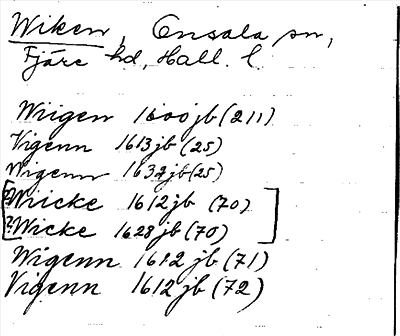 Wiken, Onsala sn,
Fjäre hd, Hall. l.
Wiigen 1600jb (211)
Vigenn 1613jb (25)
Wigenn 1634jb (25)
[? Wricke 1612jb (70) ]
[? Wicke 1628jb (70) ]
Wigenn 1612 jb (71)
Vigenn 1612 jb (72)